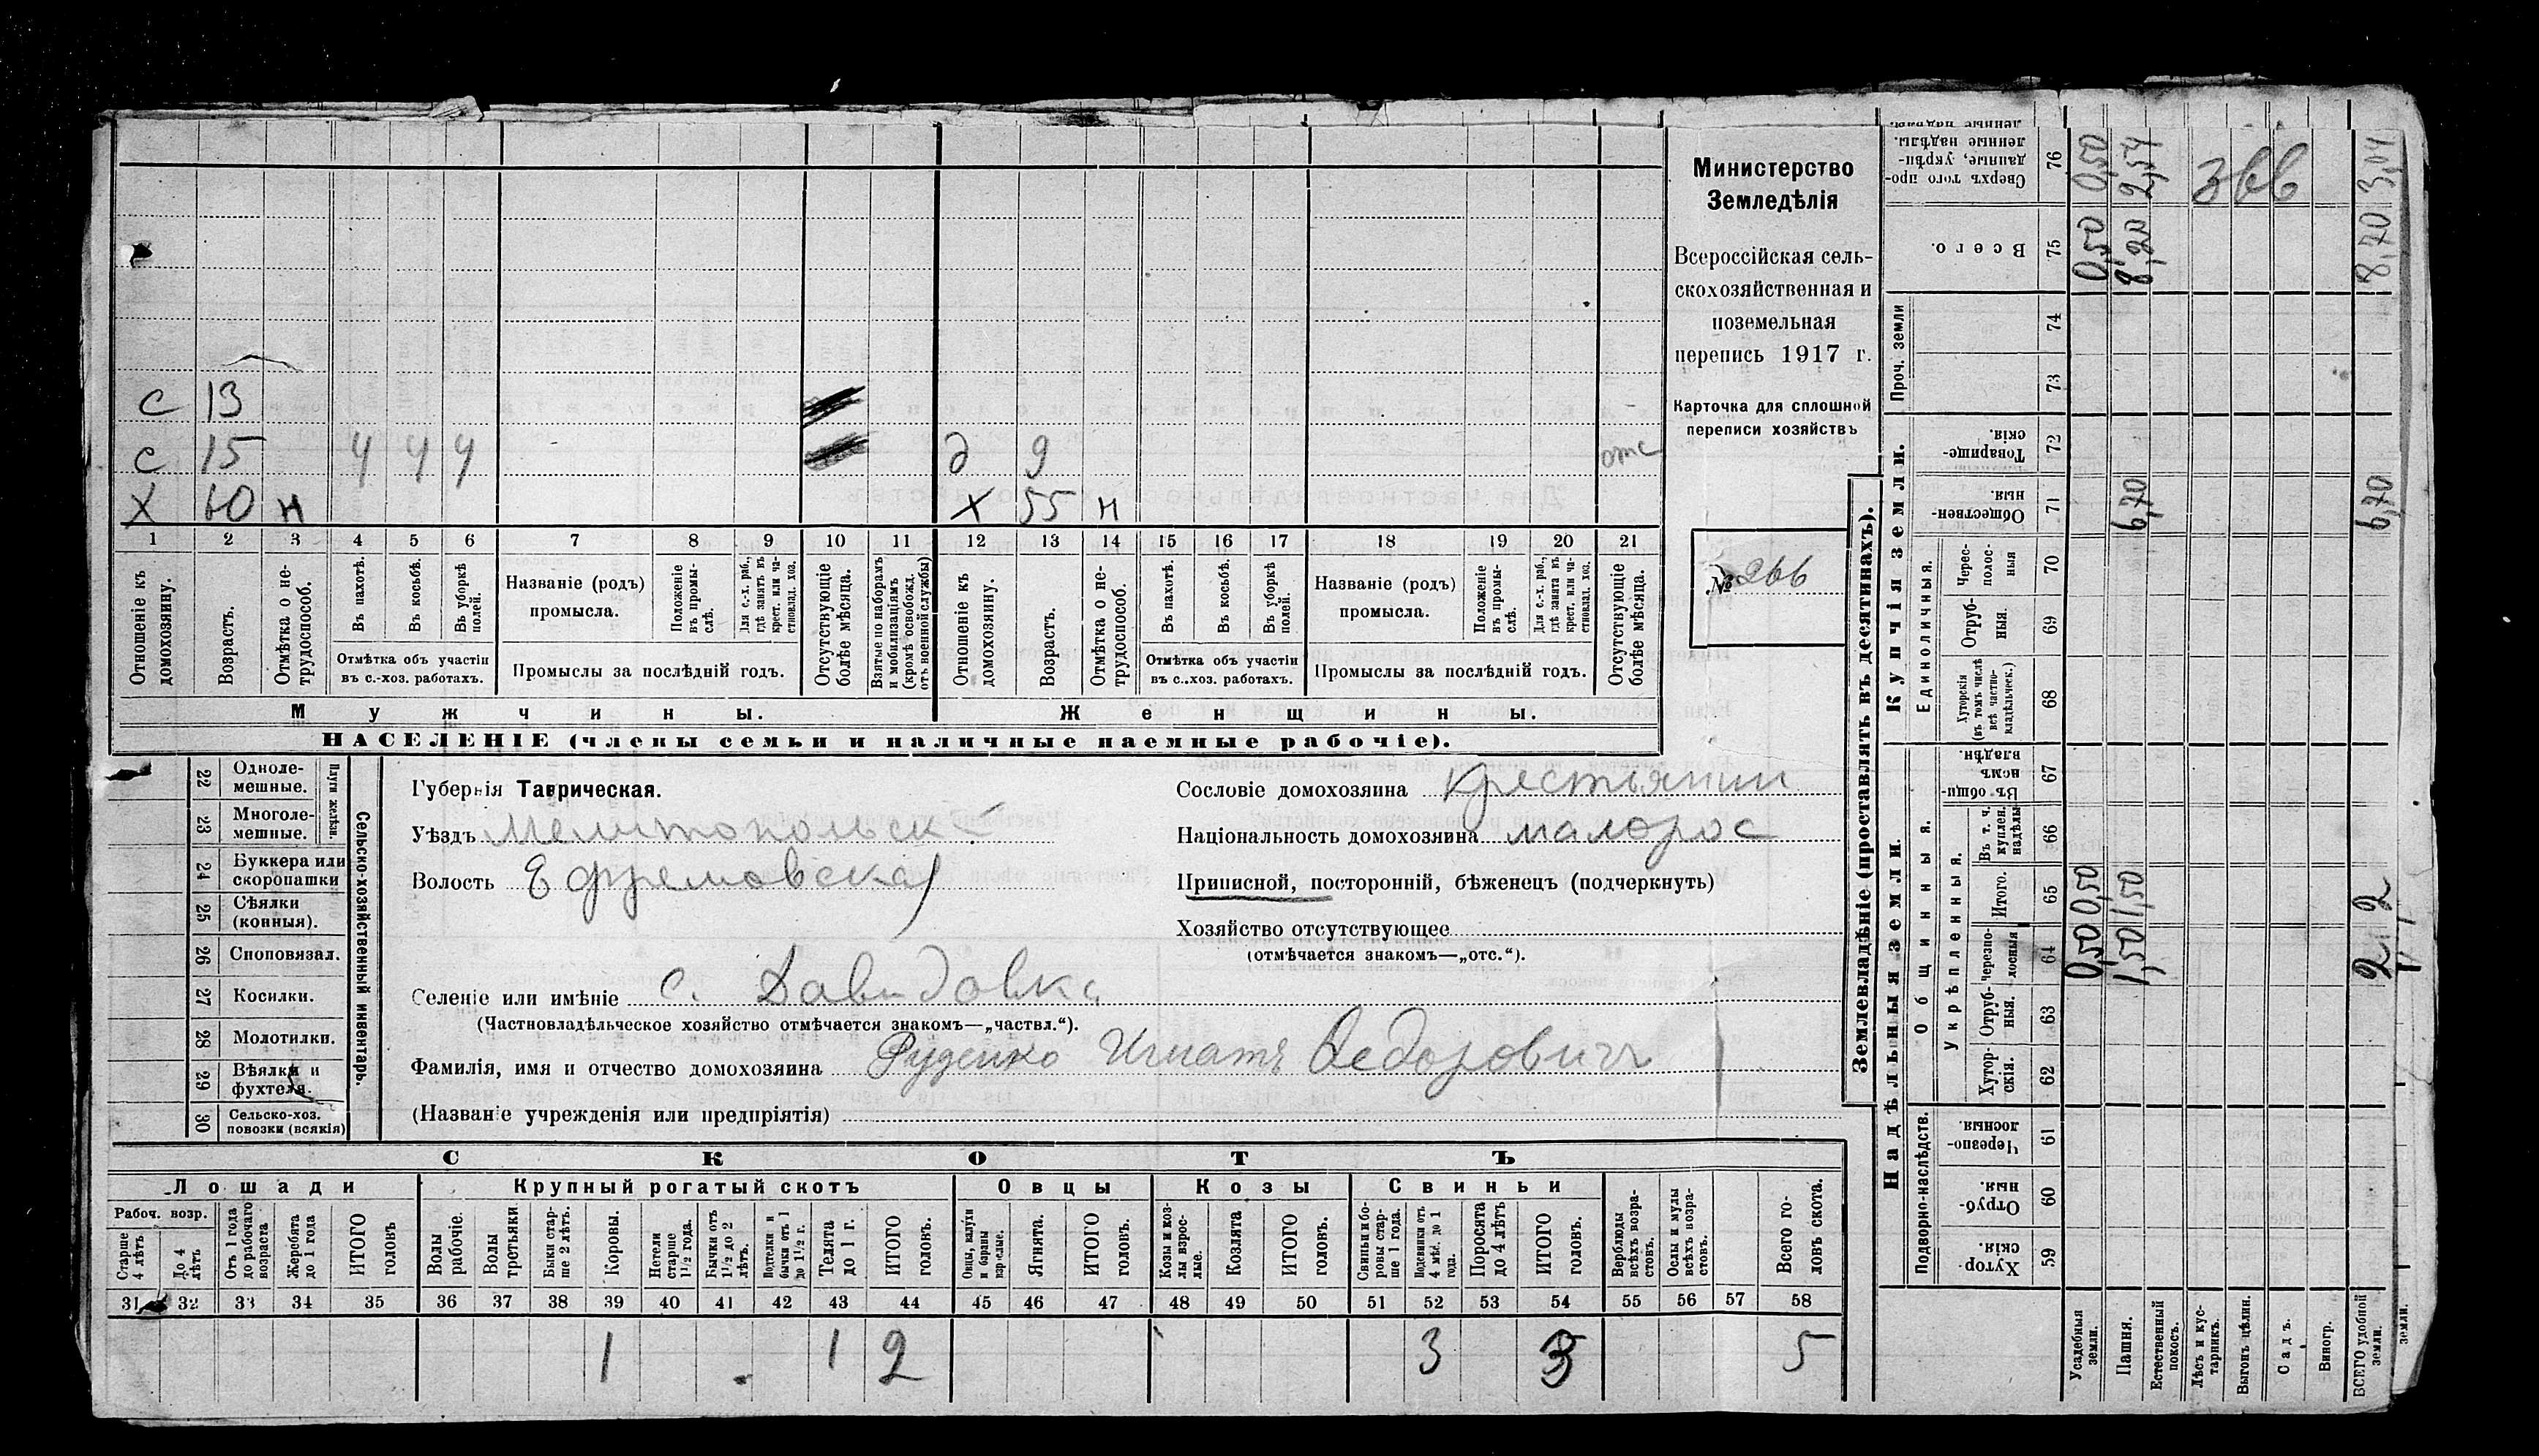 Министерство
Земледѣлія
Всероссійская сель-
скохозяйственная и
поземельная
перепись 1917 г.
Карточка для сплошной
переписи хозяйствъ
№ 266
с 13
с 15 4 4 4 д 9 отс
х 60 н х 55 н
1 2 3 4 5 6 7 8 9 10 11 12 13 14 15 16 17 18 19 20 21
Отношеніе къ домохозяину.
Возрастъ.
Отмѣтка о не-трудоспособ.
Въ пахотѣ.
Въ косьбѣ.
Въ уборкѣ полей.
Отмѣтка объ участіи
въ с.-хоз. работахъ.
Названіе (родъ)
промысла.
Положеніе въ промы-слѣ.
Для с.-х. раб., гдѣ занятъ въ крест. или ча-стновлад. хоз.
Промыслы за послѣдній годъ.
Отсутствующіе болѣе мѣсяца.
Взятые по наборамъ и мобилизаціямъ (кромѣ освобожд. отъ военной службы)
Отношеніе къ домохозяину.
Возрастъ.
Отмѣтка о не-трудоспособ.
Въ пахотѣ.
Въ косьбѣ.
Въ уборкѣ полей.
Отмѣтка объ участіи
въ с.-хоз. работахъ.
Названіе (родъ)
промысла.
Положеніе въ промы-слѣ.
Для с.-х. раб., гдѣ занята въ крест. или ча-стновлад. хоз.
Промыслы за послѣдній годъ.
Отсутствующіе болѣе мѣсяца.
Мужчины. Женщины.
НАСЕЛЕНІЕ (члены семьи и наличные наемные рабочіе).
Сельско-хозяйственный инвентарь.
Плуги желѣзн.
22 Одноле-мешные.
23 Многоле-мешные.
24 Буккера или скоропашки
25 Сѣялки (конныя).
26 Сноповязал.
27 Косилки.
28 Молотилки.
29 Вѣялки и фухтеля. 1
30 Сельско-хоз. повозки (всякія)
Губернія Таврическая.
Уѣздъ Мелитопольск
Волость Ефремовская
Селеніе или имѣніе с. Давидовка
(Частновладѣльческое хозяйство отмѣчается знакомъ—„частвл.“).
Фамилія, имя и отчество домохозяина Руденко Игнатъ Федоровичъ
(Названіе учрежденія или предпріятія)
Сословіе домохозяина крестьянин
Національность домохозяина малорос
Приписной, посторонній, бѣженецъ (подчеркнуть)
Хозяйство отсутствующее
(отмѣчается знакомъ—„отс.“).
СКОТЪ
Лошади Крупный рогатый скотъ Овцы Козы Свиньи
Рабоч. возр.
Старше 4 лѣтъ
До 4 лѣтъ
Отъ 1 года до рабочаго возраста
Жеребята до 1 года
ИТОГО головъ
Волы рабочіе.
Волы третьяки.
Быки стар-ше 2 лѣтъ.
Коровы.
Нетели старше 1½ года.
Бычки отъ 1½ до 2 лѣтъ.
Подтелки и бычки отъ 1 до 1½ г.
Телята до 1 г.
ИТОГО головъ.
Овцы, валухи и бараны взрослые.
Ягнята.
ИТОГО головъ.
Козы и коз-лы взрос-лые.
Козлята
ИТОГО головъ.
Свиньи и бо-ровы стар-ше 1 года.
Подсвинки отъ 4 мѣс. до 1 года.
Поросята до 4 лѣтъ
ИТОГО головъ.
Верблюды всѣхъ возра-стовъ.
Ослы и мулы всѣхъ возра-стовъ.
Всего го-ловъ скота.
31 32 33 34 35 36 37 38 39 40 41 42 43 44 45 46 47 48 49 50 51 52 53 54 55 56 57 58
1 1 2 3 3 5
Землевладѣніе (проставлять въ десятинахъ).
Надѣльныя земли.
Подворно-наслѣдств.
Хутор-скія. 59
Отруб-ныя. 60
Черезпо-лосныя. 61
Общинныя.
Укрѣпленныя.
Хутор-скія. 62
Отруб-ныя. 63
Черезпо-лосныя 64 0,50 1,50 2
Итого. 65 0,50 1,50 2
Въ т. ч. куплен. надѣлы 66
Въ общи-номъ владѣн. 67
Купчія земли.
Единоличныя.
Хуторскія (въ томъ числѣ всѣ частно-владѣльческ.) 68
Отруб-ныя 69
Черес-полос-ныя 70
Обществен-ныя. 71 6,70 6,70
Товарище-скія. 72
Проч. земли
73
74
Всего. 75 0,50 8,20 8,70
Сверхъ того про-данные, укрѣп-ленные надѣлы. 76 0,50 2,54 3,04
366
Усадебныя земли.
Пашня.
Естественный покосъ.
Лѣсъ и кус-тарникъ.
Выгонъ цѣлин.
Садъ.
Виногр.
ВСЕГО удобной земли.
земли.